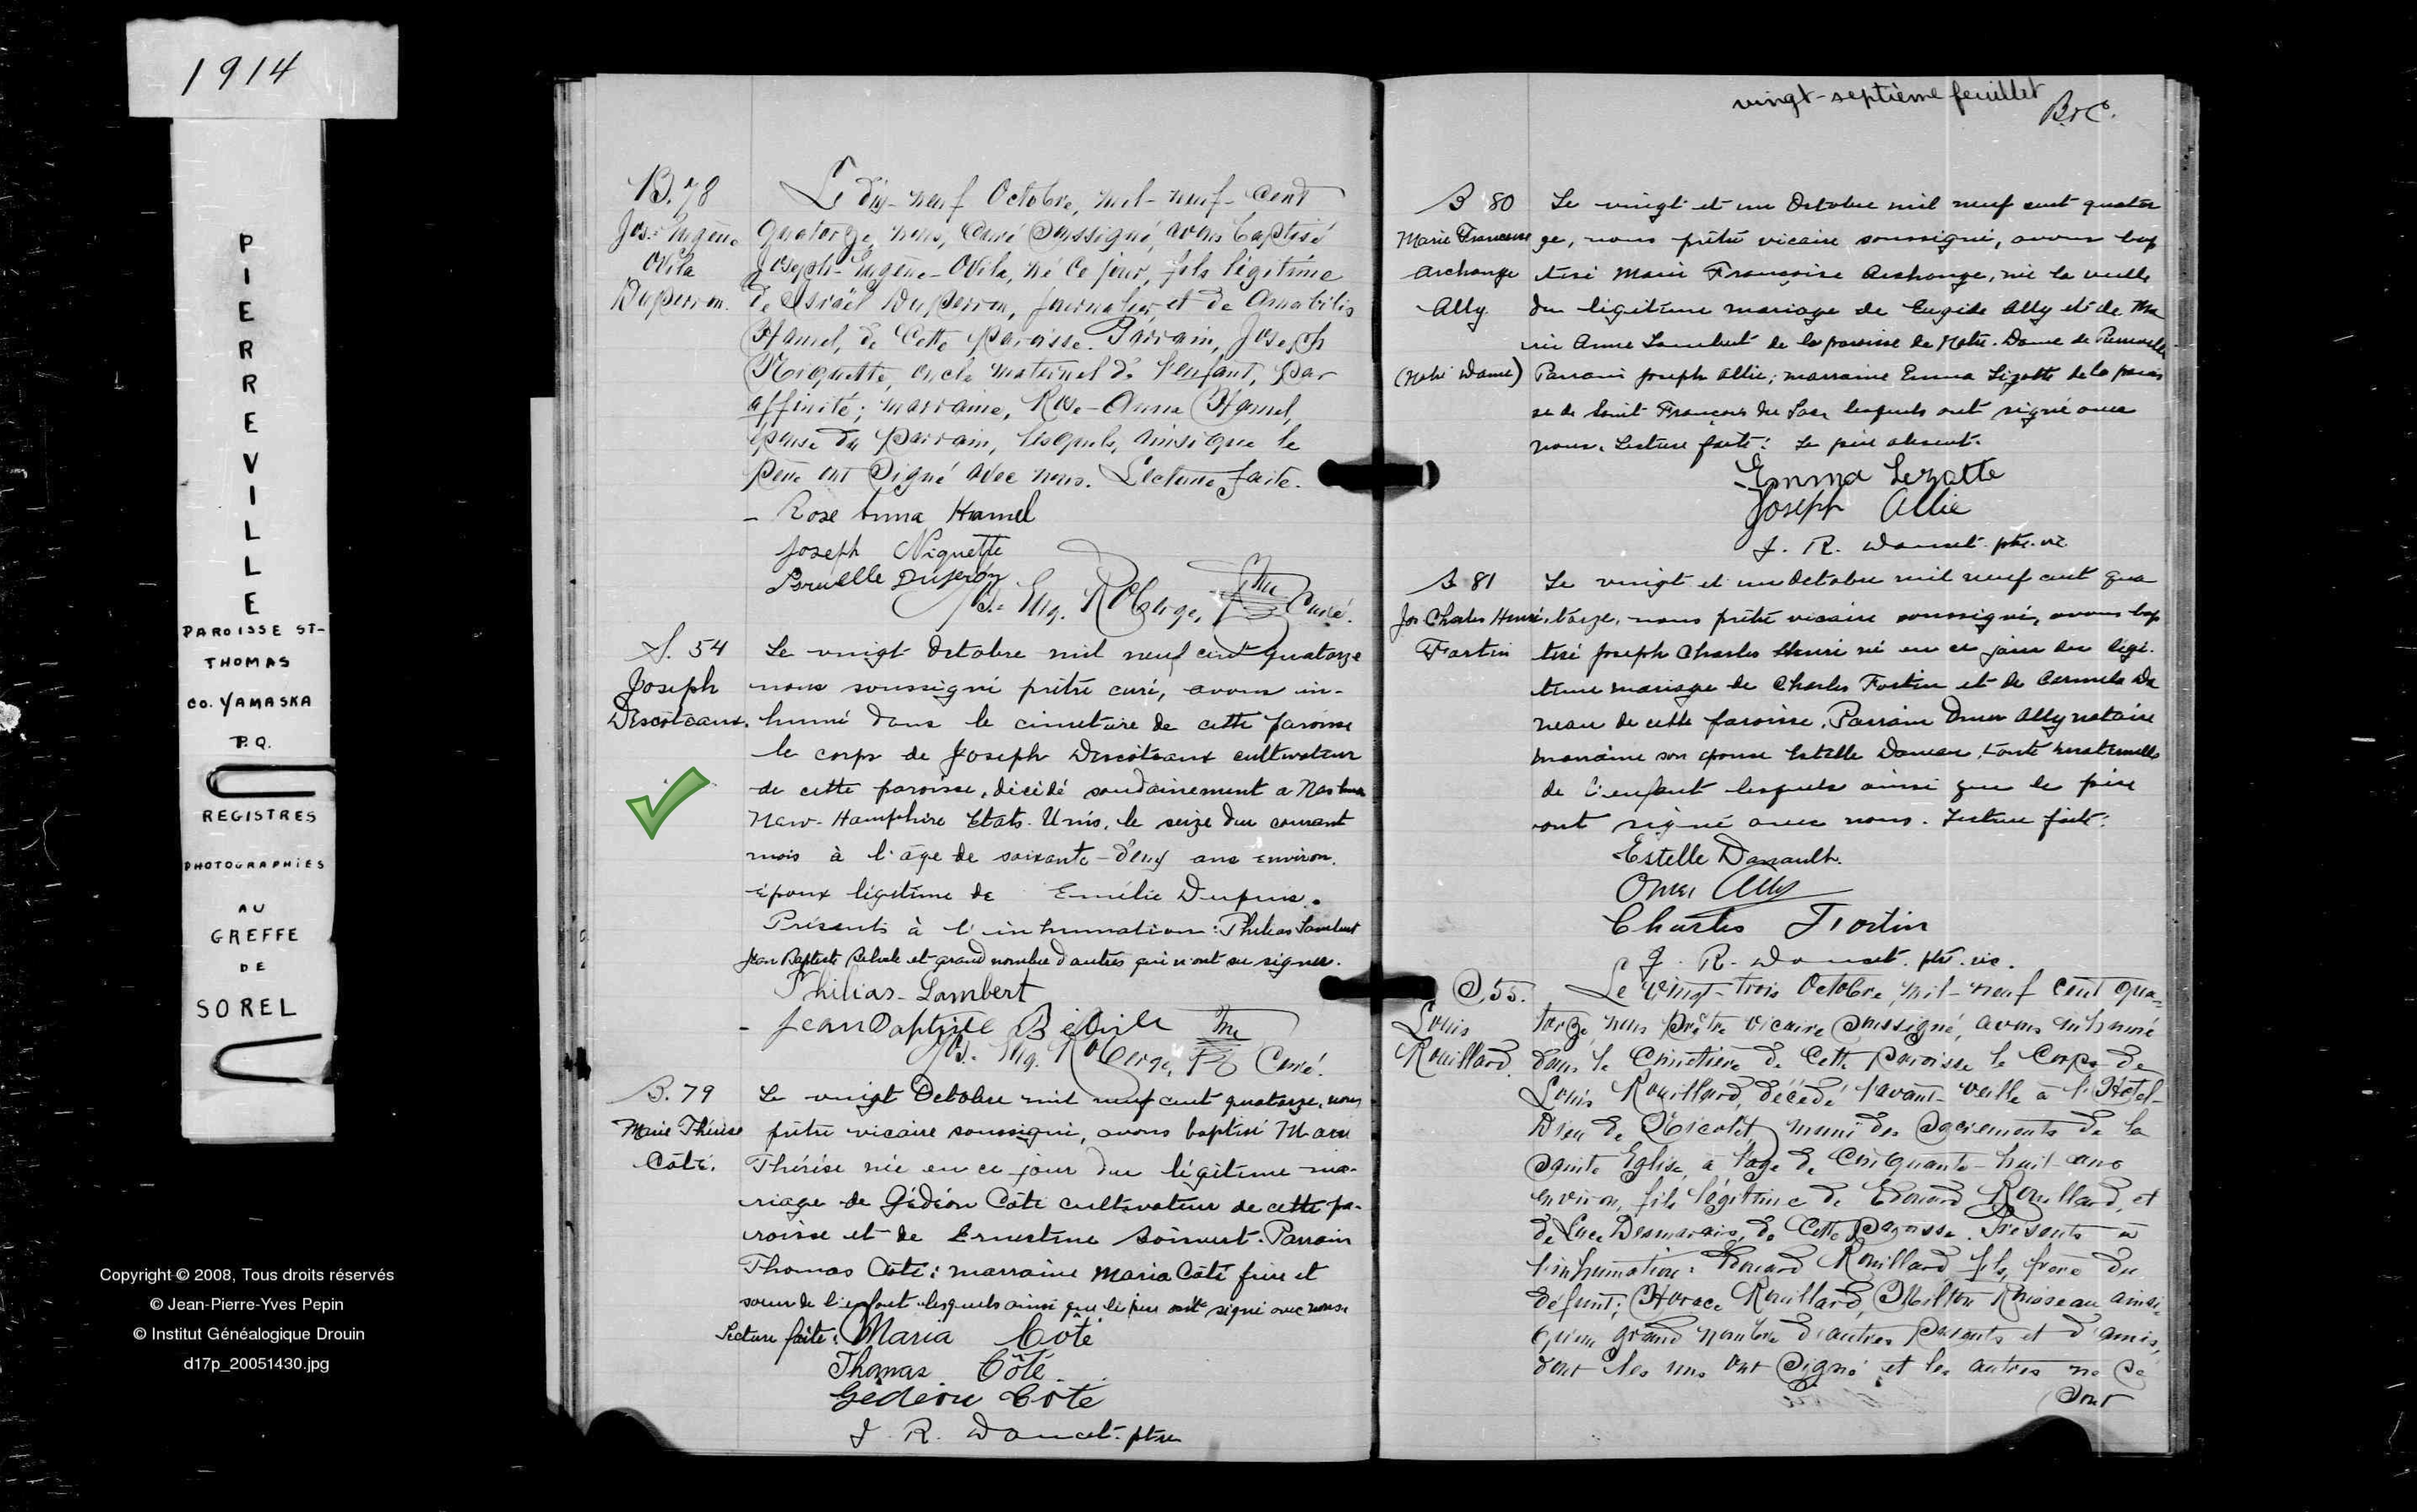 1914
PIERREVILLE
PAROISSE ST-
THOMAS
CO. YAMASKA
P.Q.
REGISTRES
PHOTOGRAPHIES
AU
GREFFE
DE
SOREL
Copyright © 2008, Tous droits réservés
© Jean-Pierre-Yves Pepin
© Institut Généalogique Drouin
d17p_20051430.jpg
B. 78
Jos.-Eugène
Ovila
Duperron.
Le dix-neuf Octobre, mil-neuf-cent
quatorze, nous, Curé soussigné, avons baptisé
Joseph-Eugène-Ovila, né ce jour, fils légitime
de Israël Duperron, journalier et de Amabilis
Hamel, de cette paroisse. Parrain, Joseph
Niquette, oncle maternel de l'enfant, par
affinité; marraine, Rose-Anna Hamel,
épouse du parrain, lesquels, ainsi que le
père ont signé avec nous. Lecture faite.
Rose Anna Hamel
Joseph Niquette
Duperon
Jos. Eug. Roberge, Ptre Curé.
S. 54
Joseph
Descôteaux.
Le vingt Octobre mil neuf cent quatorze
nous soussigné prêtre curé, avons in-
humé dans le cimetière de cette paroisse
le corps de Joseph Descôteaux cultivateur
de cette paroisse, décédé soudainement a Nashua
New-Hamphire Etats-Unis, le seize du courant
mois à l'âge de soixante-deux ans environ.
époux légitime de Emélie Dupuis.
Présents à l'inhumation: Philias Lambert
Jean Baptiste Belisle et grand nombre d'autres qui n'ont su signer.
Philias-Lambert
Jean Baptiste
Jos. Eug. Roberge, Ptre Curé.
B. 79
Marie Thérèse
Côté.
Le vingt Octobre mil neuf cent quatorze, nous
prêtre vicaire soussigné, avons baptisé Marie
Thérèse née en ce jour du légitime ma-
riage de Gédéon Côté cultivateur de cette pa-
roisse et de Ernestine Boisvert. Parrain
Thomas Côté; marraine Maria Côté frère et
soeur de l'enfant lesquels ainsi que le père ont signé avec nous
Lecture faite: Maria Coté
Thomas Côté
Gédéon Coté
J. R. Doucet. ptre
vingt-septième feuillet
B 80
Marie Francoise
Archange
Ally
(Notre Dame)
Le vingt et un Octobre mil neuf cent quator
ze, nous prêtre vicaire soussigné, avons bap
tisé Marie Françoise Archange, née la veille
du légitime mariage de Eugide Ally et de Ma
rie Anne Lambert de la paroisse de Notre-Dame de Pierreville
Parrain Joseph Allie; marraine Emma Lizotte de la parois
se de Saint François du Lac, lesquels ont signé avec
nous. Lecture faite: Le père absent.
Emma Lezotte
Joseph Allie
J. R. Doucet. ptre. vic
B 81
Jos Charles Henri
Fortin
Le vingt et un Octobre mil neuf cent qua
torze, nous prêtre vicaire soussigné, avons bap
tisé Joseph Charles Henri né en ce jour du légi-
time mariage de Charles Fortin et de Da
neau de cette paroisse. Parrain Omer Ally notaire
marraine son épouse Estelle Daneau, tante maternelle
de l'enfant lesquels ainsi que le père
ont signé avec nous. Lecture faite:
Estelle Danault.
Omer Ally
Charles Fortin
J. R. Doucet. ptre. vic.
S. 55.
Louis
Rouillard.
Le vingt-trois Octobre, mil-neuf cent qua-
torze, nous Prêtre vicaire soussigné, avons inhumé
dans le Cimetière de cette paroisse le corps de
Louis Rouillard, décédé l'avant-veille à l'Hôtel-
Dieu de Nicolet, muni des Sacrements de la
Sainte Eglise, à l'âge de cinquante-huit ans
environ, fils légitime de Edouard Rouillard, et
de Luce Desmarais, de cette paroisse. Présents à
l'inhumation: Edouard Rouillard fils, frère du
défunt; Horace Rouillard, Milton Rousseau ainsi
qu'un grand nombre d'autres parents et d'amis,
dont les uns ont signé et les autres ne se
sont